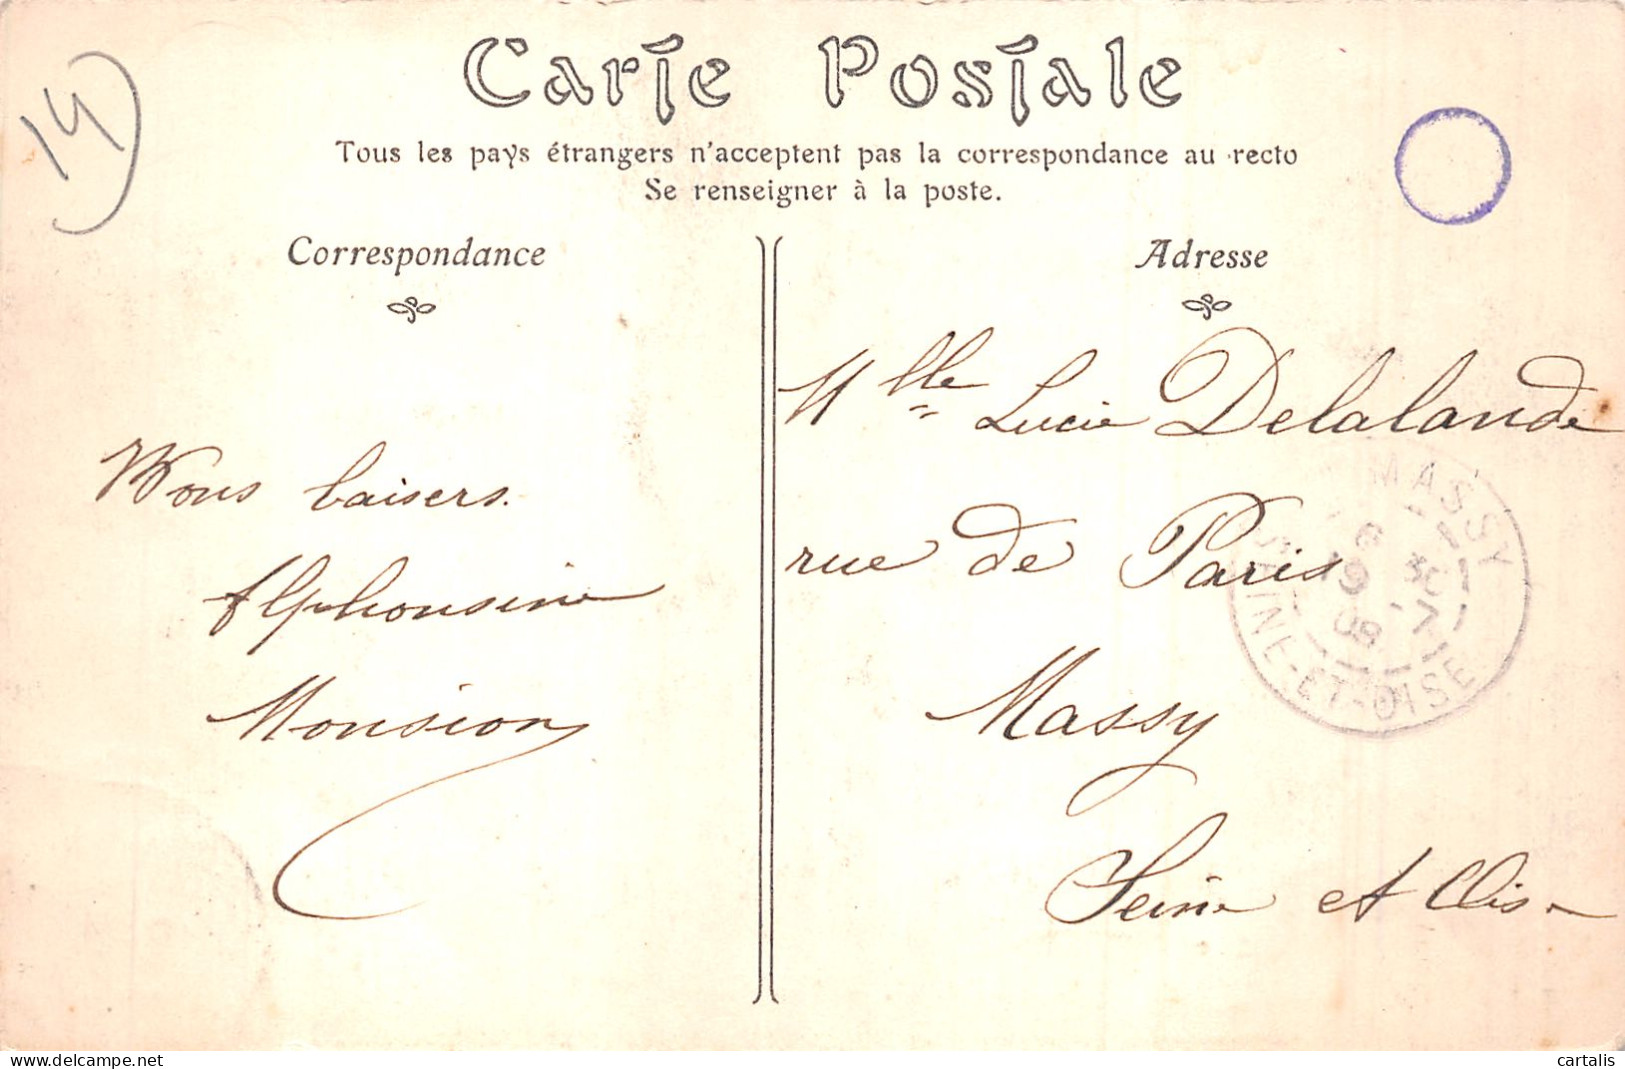 14
Carte Postale
Tous les pays étrangers n'acceptent pas la correspondance au recto
Se renseigner à la poste.
Correspondance
Adresse
Mlle Lucie Delalande
rue de Paris
Massy
Seine et Oise
baisers.
Alphonsine
Monsion
MASSY
SEINE-ET-OISE
www.delcampe.net
cartalis